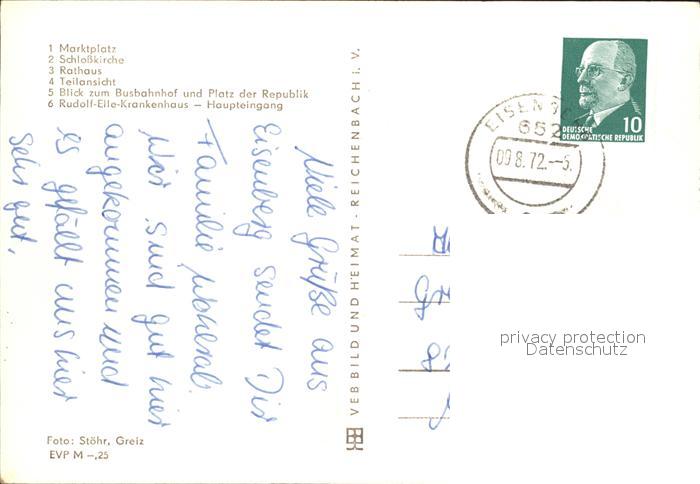 1 Marktplatz
2 Schloßkirche
3 Rathaus
4 Teilansicht
5 Blick zum Busbahnhof und Platz der Republik
6 Rudolf-Elle-Krankenhaus – Haupteingang
Viele Grüße aus
Eisenberg sendet Dir
Familie
Wir sind gut hier
angekommen und
es gefällt uns hier
sehr gut.
Foto: Stöhr, Greiz
EVP M –,25
VEB BILD UND HEIMAT · REICHENBACH i. V.
EISENBE
652
09.8.72.–5.
DEUTSCHE
DEMOKRATISCHE REPUBLIK
10
privacy protection
Datenschutz